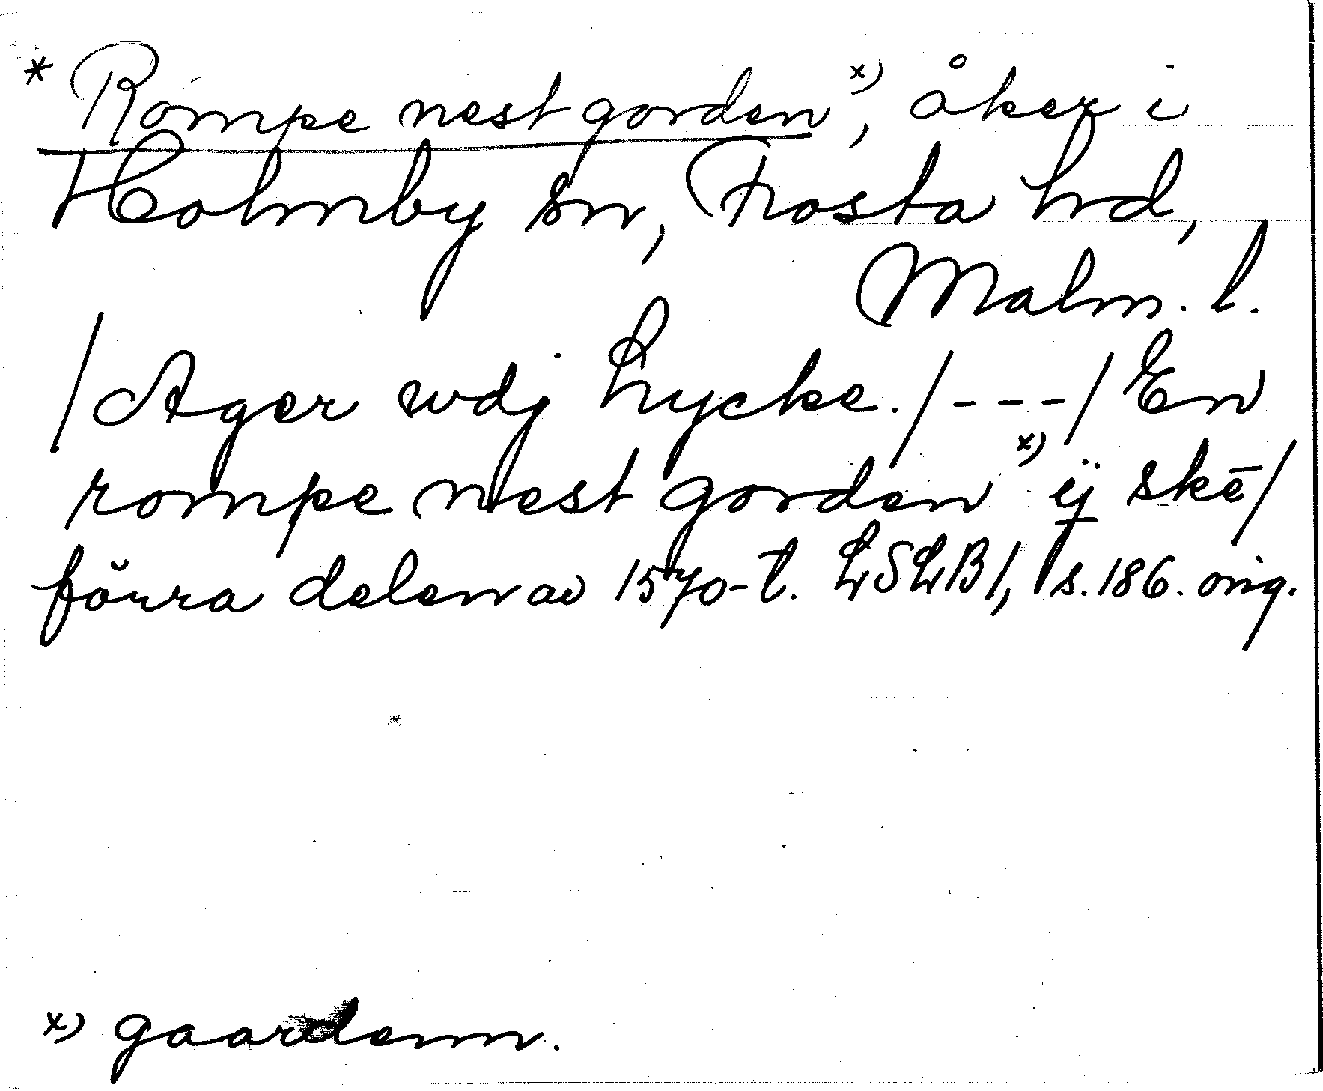 * Rompe nest gorden x), åker i
Holmby sn, Frosta hd,
Malm. l.
/Ager wdj Lycke./---/ En
rompe nest gorden x) ij skē/
förra delen av 1570-t. LSLB1, s.186. orig.
x) gaardenn.